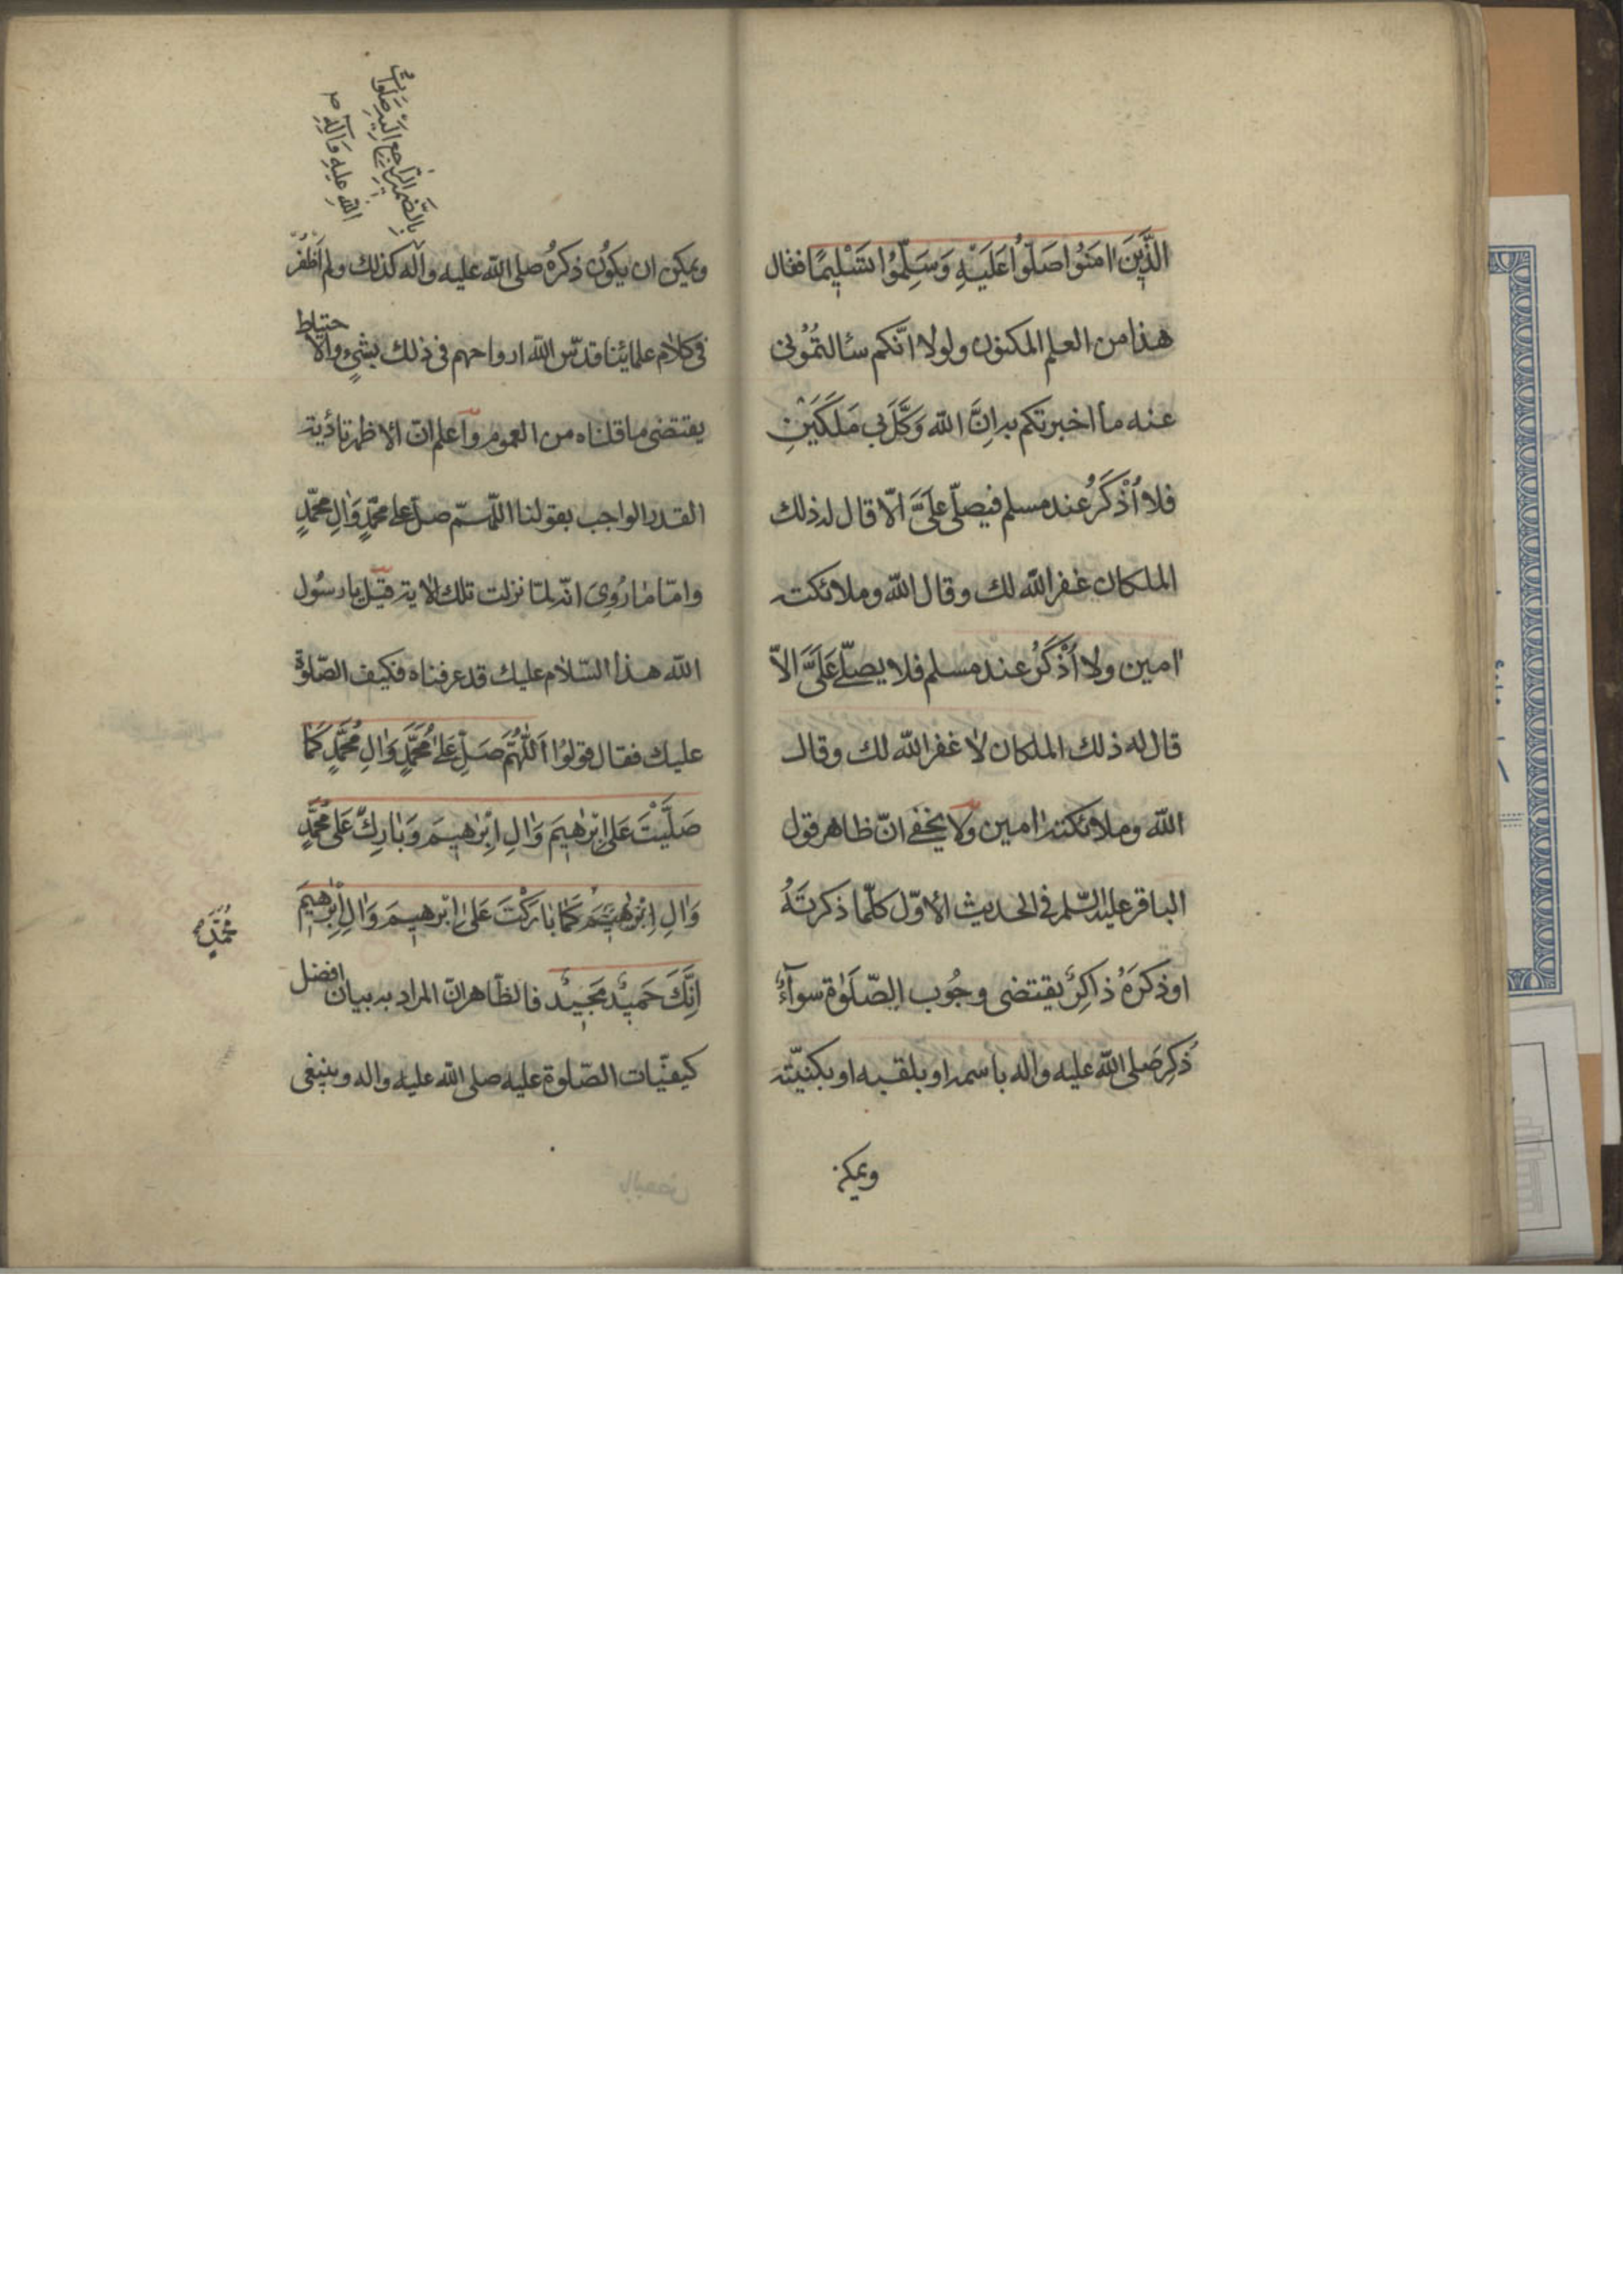 الَّذِينَ اٰمَنُوا صَلُّوا عَلَيْهِ وَسَلِّمُوا تَسْلِيمًا فقال
هذا من العلم المكنون ولولا انّكم سئالتمُونى
عنه ما اخبرتكم به اِنَّ الله وَكَّلَ بي مَلَكَيْنِ
فلا اُذْكَرُ عند مسلم فيصلّى عَلَىَّ الّا قال له ذلك
الملكان غفر الله لك وقال الله وملائكته
اٰمين ولا اُذْكَرُ عند مسلم فلا يصلّے عَلَىَّ الاّ
قال له ذلك الملكان لا غفر الله لك وقال
الله وملائكته اٰمين ولا يخفى انّ ظاهر قول
الباقر عليه السّلم فى الحديث الاوّل كلّما ذكرتَهُ
او ذكرَهُ ذاكِرٌ يقتضى وجُوب الصّلَوٰة سوآءٌ
ذُكِرَ صلى الله عليه واله باسمه او بلقبه او بكنيّته
ويمكن
ويمكن ان يكوُن ذكرهُ صلى الله عليه واله كذلك ولم اَظْفُر
فى كلام علمائنا قدّس الله ارواحهم فى ذلك بشىءٍ والاحتياط
يقتضى ما قلناه من العموم واعلم انّ الاظهر تأدّية
القدر الواجب بقولنا اللّهمّ صلّ على محمّدٍ وَاٰلِ محمّدٍ
وامّا ما رُوِىَ انّه لمّا نزلت تلك الاٰية قيل يا رسُول
الله هذا السّلام عليك قد عرفناه فكيف الصّلوٰة
عليك فقال قولوُا اَللّٰهُمَّ صَلِّ عَلىٰ مُحَمَّدٍ وَاٰلِ مُحَمَّدٍ كَمٰا
صَلَّيْتَ عَلىٰ اِبْرٰهيمَ وَاٰلِ اِبْرٰهيمَ وَبٰارِكْ عَلىٰ مُحَمَّدٍ
وَاٰلِ مُحَمَّدٍ كَمٰا بٰارَكْتَ عَلىٰ اِبْرٰهيمَ وَاٰلِ اِبْرٰهيمَ
اِنَّكَ حَميٌد مَجيٌد فالظّاهر انّ المراد به بيان افضل
كيفيّات الصّلوة عليه صلى الله عليه واله وينبغى
بالضّمير الرّاجع اليه صلواتُ
اللهِ عليهِ وَآلِهِ
مُحَمَّدٍ